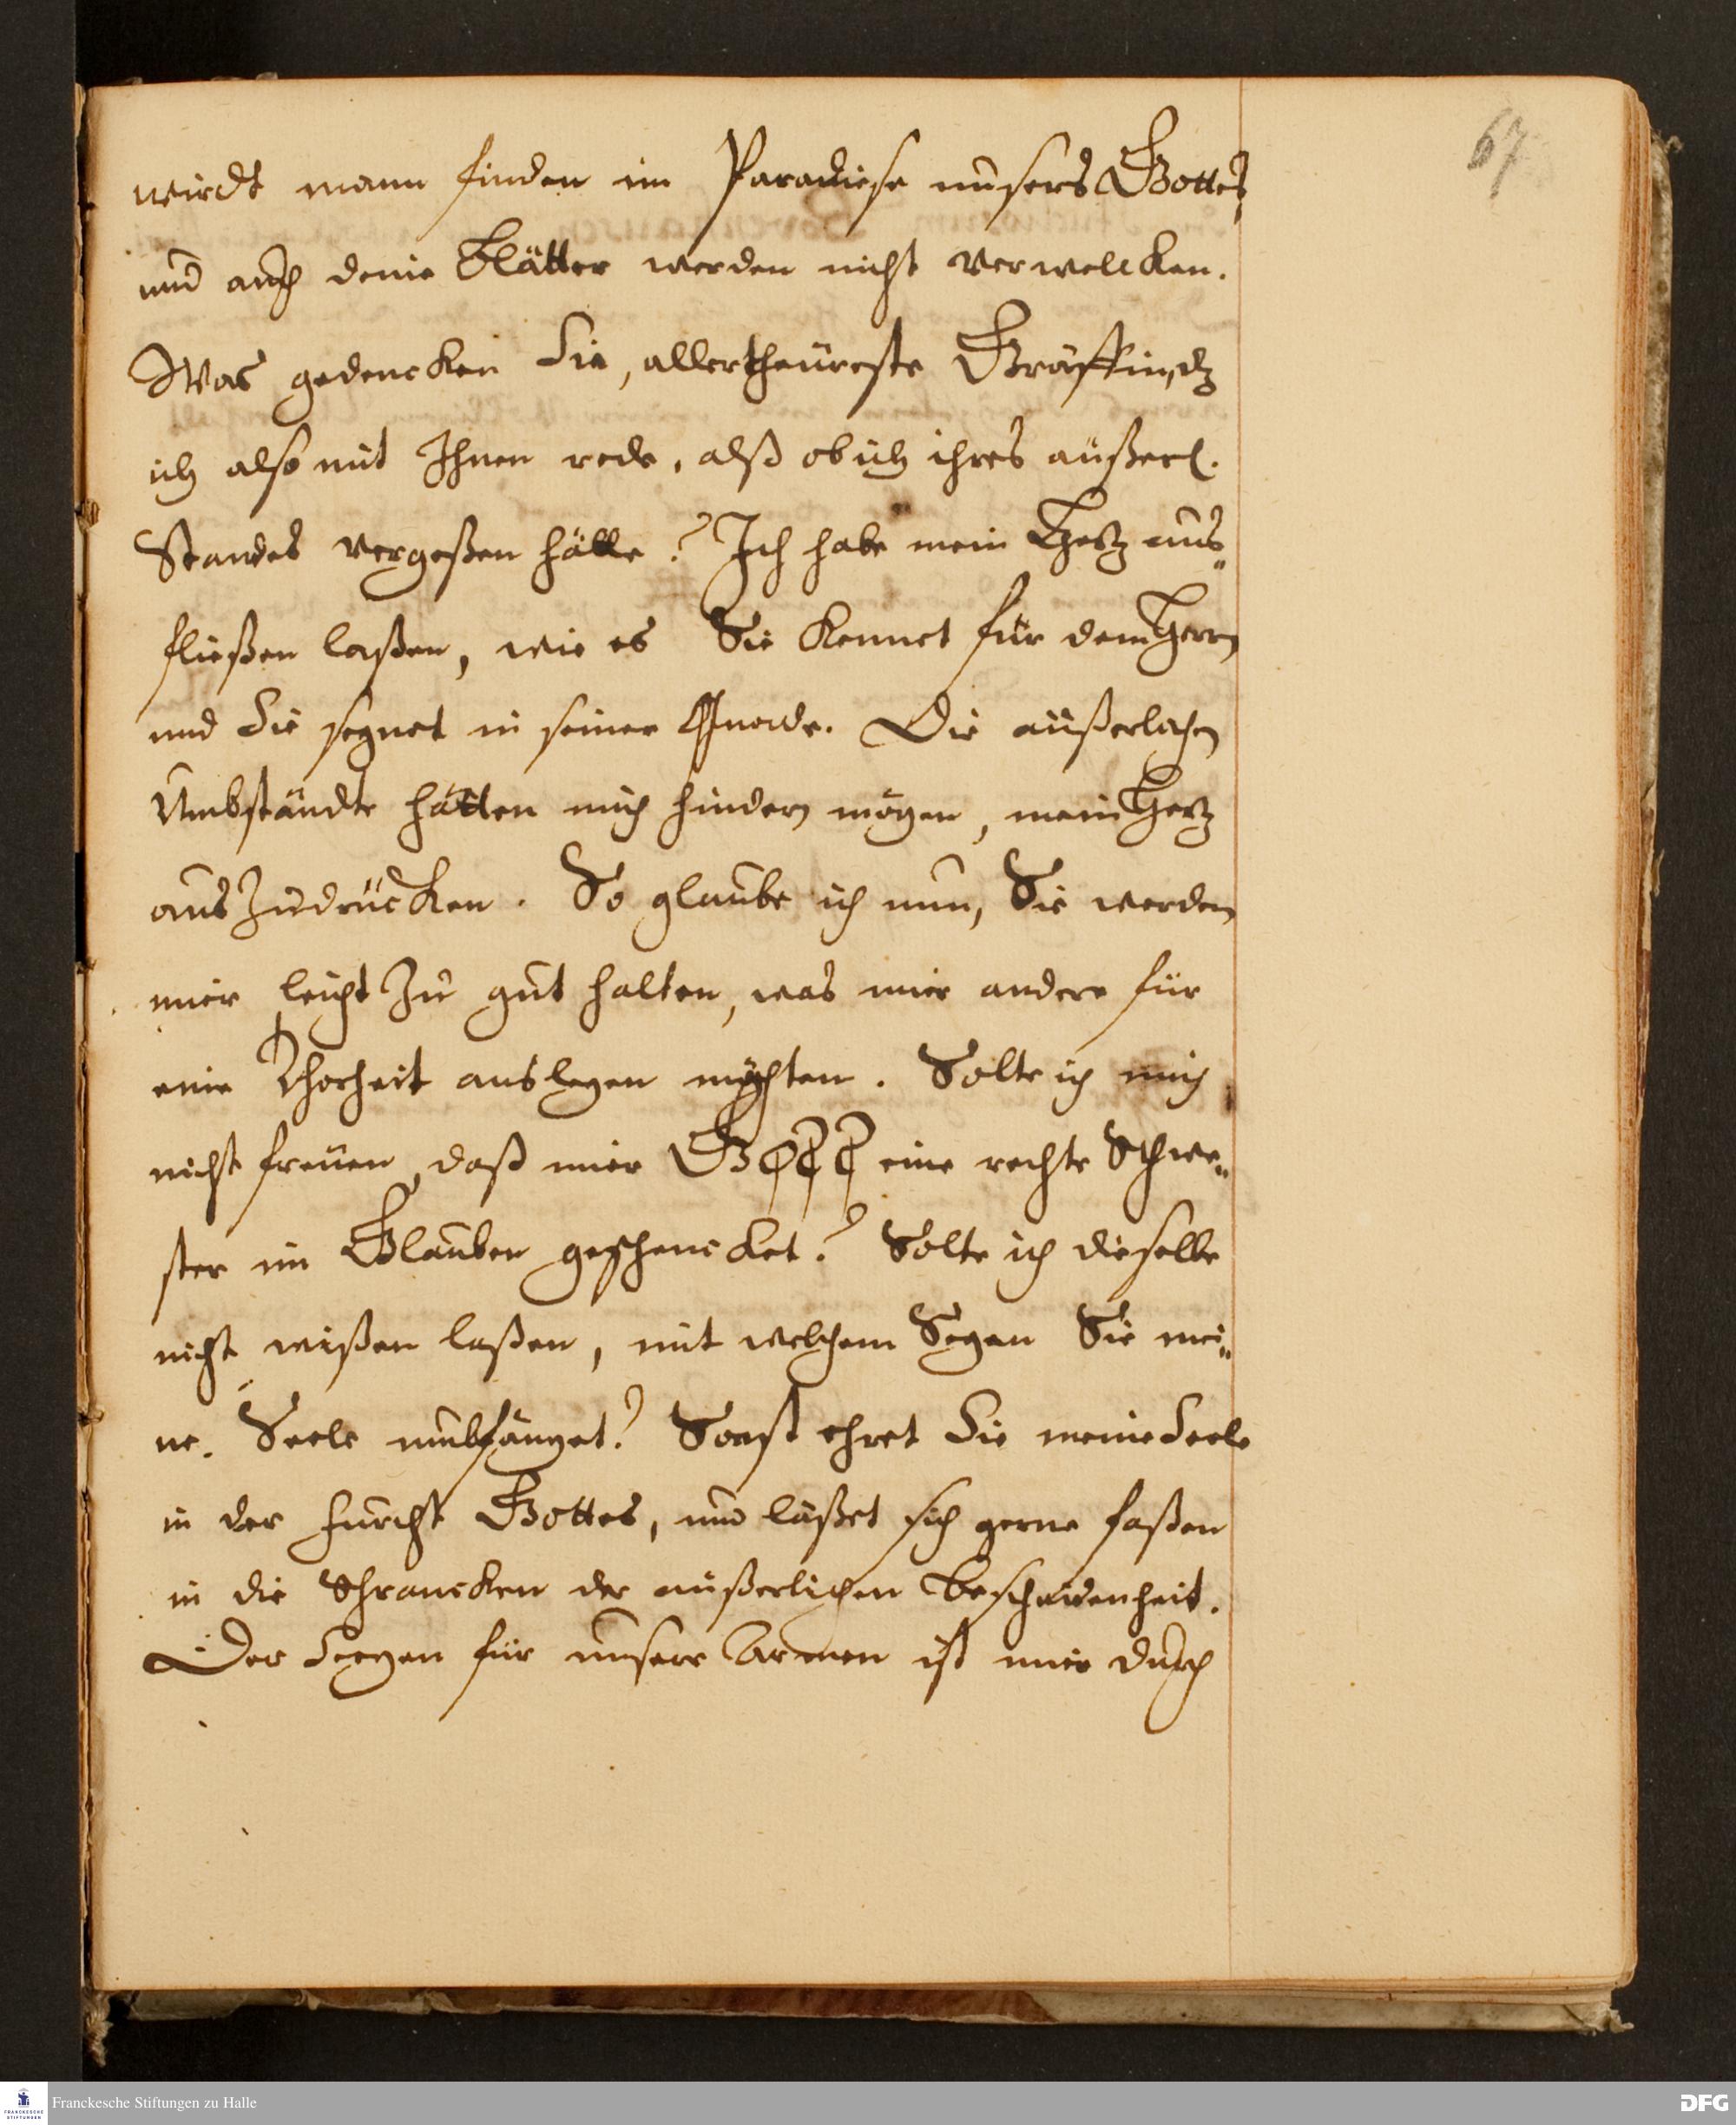 67
wirdt mann finden im Paradiese unsers Gottes,
und auch deine Blätter werden nicht verwelcken.
Was gedencken Sie, allertheüreste Gräffin, dz
ich also mit Ihnen rede, alß ob ich ihres äußerl.
Standes vergeßen hätte? Ich habe mein Hertz aus„
fließen laßen, wie es Sie kennet für dem Herrn
und Sie segnet in seiner Gnade. Die äüßerlichen
Umbstände hätten mich hindern mögen, mein Hertz
auszudrücken. So glaube ich nun, Sie werden
mir leicht zu gut halten, was mir andere für
eine Thorheit auslegen möchten. Solte ich mich
nicht freüen, daß mir GOTT eine rechte Schwe„
ster im Glauben geschencket? Solte ich dieselbe
nicht wißen laßen, mit welchem Segen Sie mei„
ne Seele umbfänget? Sonst ehret Sie meine Seele
in der Furcht Gottes, und läßet sich gerne faßen
in die Schrancken der äußerlichen Bescheidenheit.
Der Seegen für unsere Armen ist mir durch
Franckesche Stiftungen zu Halle
FRANCKESCHE
STIFTUNGEN
DFG